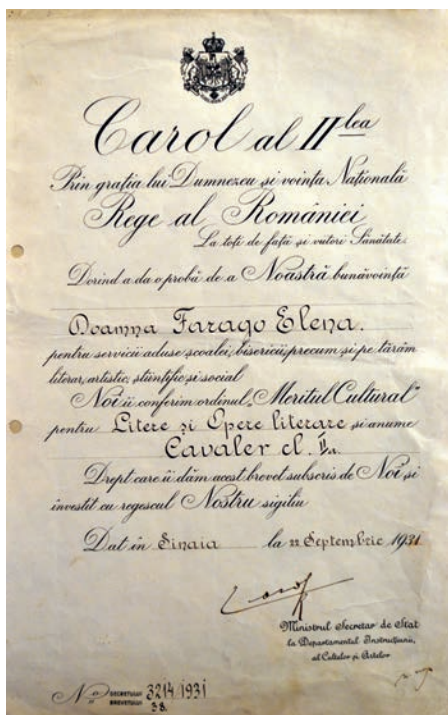 Carol al II lea
Prin grația lui Dumnezeu și voința Națională
Rege al României
La toți de față și viitori Sănătate.
Dorind a da o probă de a Noastră bunăvoință
Doamna Farago Elena.
pentru servicii aduse școalei, bisericii, precum și pe tărâm
literar, artistic, științific și social
Noi îi conferim ordinul „Meritul Cultural"
pentru Litere și Opere literare și anume
Cavaler cl. II a.
Drept care îi dăm acest brevet subscris de Noi și
investit cu regescul Nostru sigiliu
Dat în Sinaia la 22 Septembrie 1931
Carol
Ministrul Secretar de Stat
la Departamentul Instrucțiunii,
al Cultelor și Artelor
No DECRETULUI 3214/1931
BREVETULUI 38.